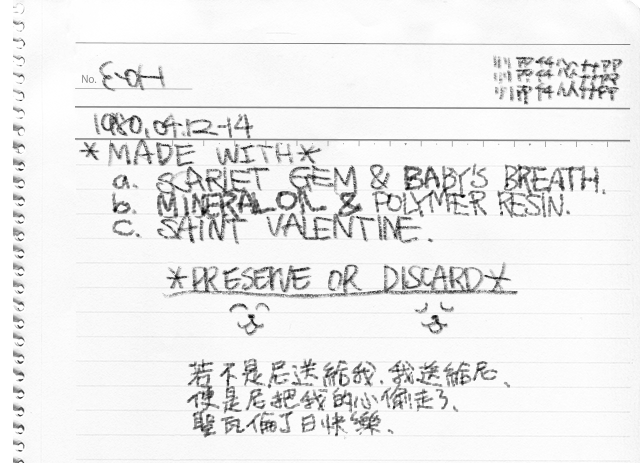 No.
1980.04.12-14
*MADE WITH*
a. SCARLET GEM & BABY'S BREATH.
b. MINERAL OIL & POLYMER RESIN.
c. SAINT VALENTINE.
*PRESERVE OR DISCARD*
若不是尼送給我、我送給尼、
便是尼把我的心偷走了、
聖瓦倫丁日快樂、